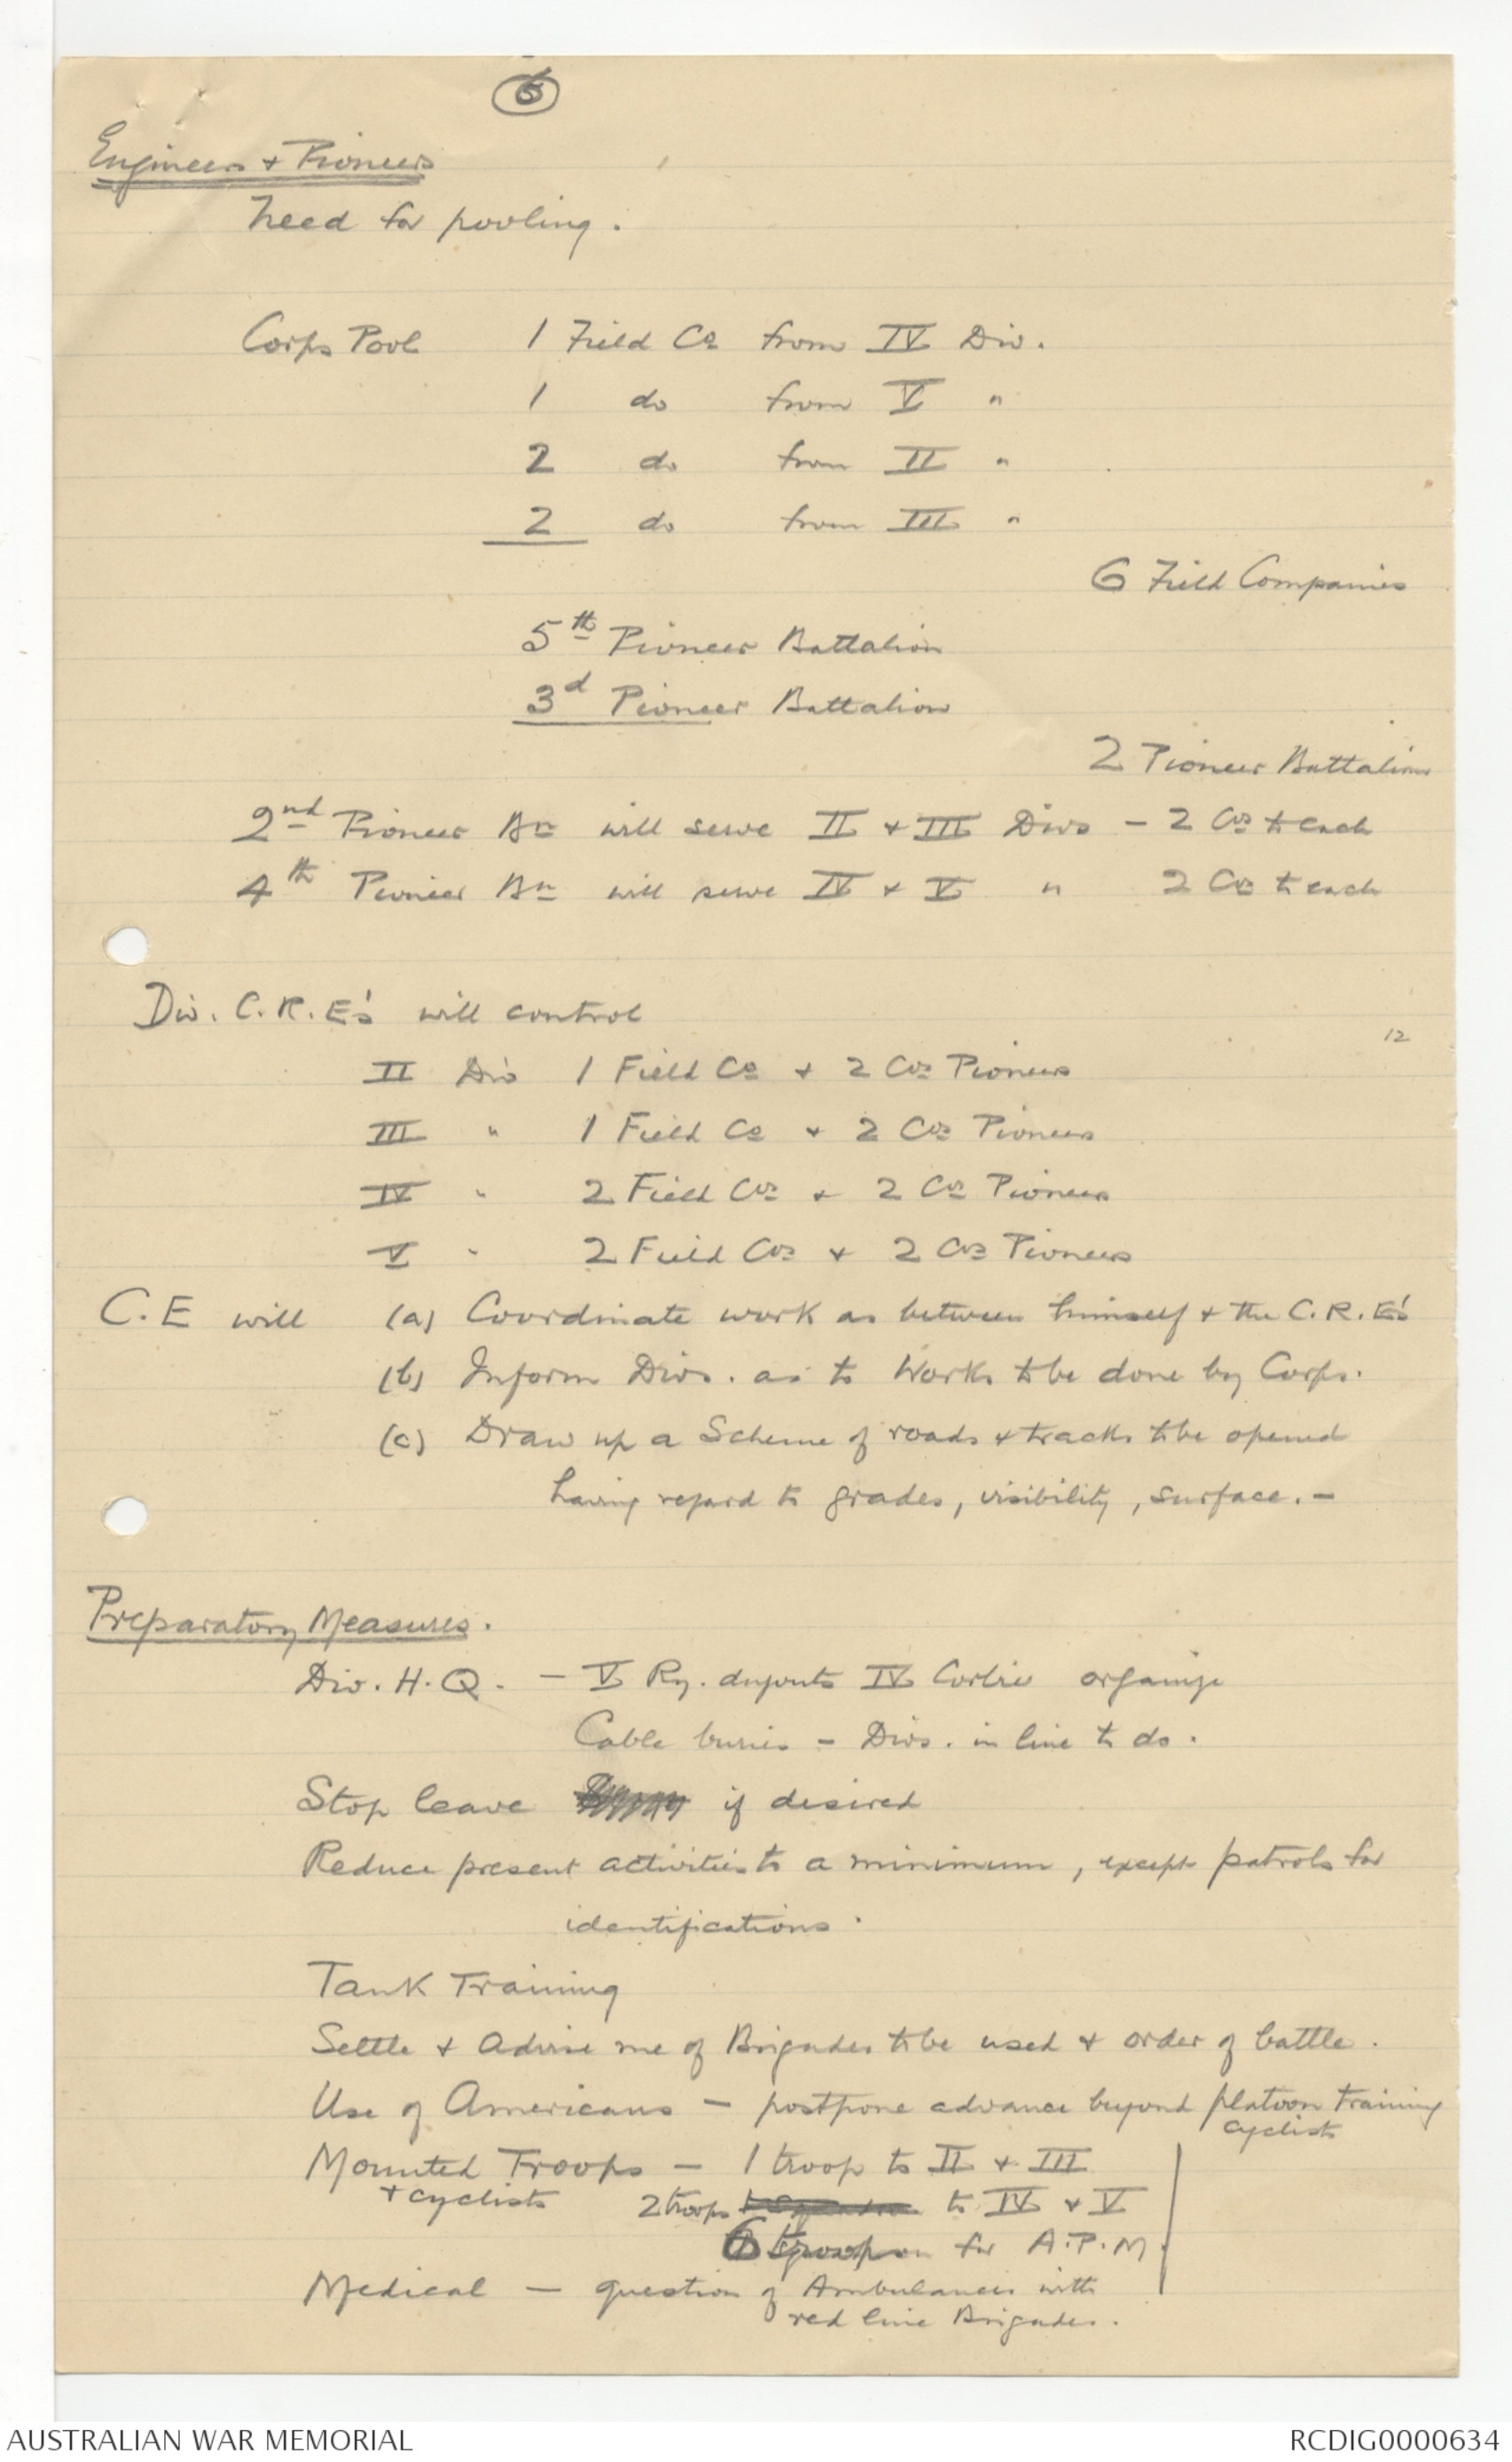 6
Engineers + Pioneers
Need for pooling.
Corps Pool 1 Field Co from IV Div.
1 do from V "
2 do from II "
2 do from III "
6 Field Companies
5th Pioneer Battalion
3d Pioneer Battalion
2 Pioneer Battalions
2nd Pioneer Bn will serve II + III Divs - 2 Cos to each
4th Pioneer Bn will serve IV + V " 2 Cos to each
Div. C.R.E's will control
12
II Div 1 Field Co + 2 Cos Pioneers
III " 1 Field Co + 2 Cos Pioneers
IV " 2 Field Cos + 2 Cos Pioneers
V " 2 Field Cos + 2 Cos Pioneers
C.E will (a) Coordinate work as between himself + the C.R.E's
(b) Inform Divs. as to Works to be done by Corps.
(c) Draw up a Scheme of roads + tracks to be opened
having regard to grades, visibility, surface. -
Preparatory Measures.
Div. H.Q. - V Ry. dugouts IV Corbie organize
Cable buries - Divs. in line to do.
Stop leave if desired
Reduce present activities to a minimum, except patrols for
identifications.
Tank Training
Settle + Advise me of Brigades to be used + order of battle.
Use of Americans - postpone advance beyond platoon training
cyclists
Mounted Troops - 1 troop to II + III
+ cyclists 2 troops to IV + V
6 for A.P.M.
Medical - question of Ambulances with
red line Brigades.
AUSTRALIAN WAR MEMORIAL
RCDIG0000634